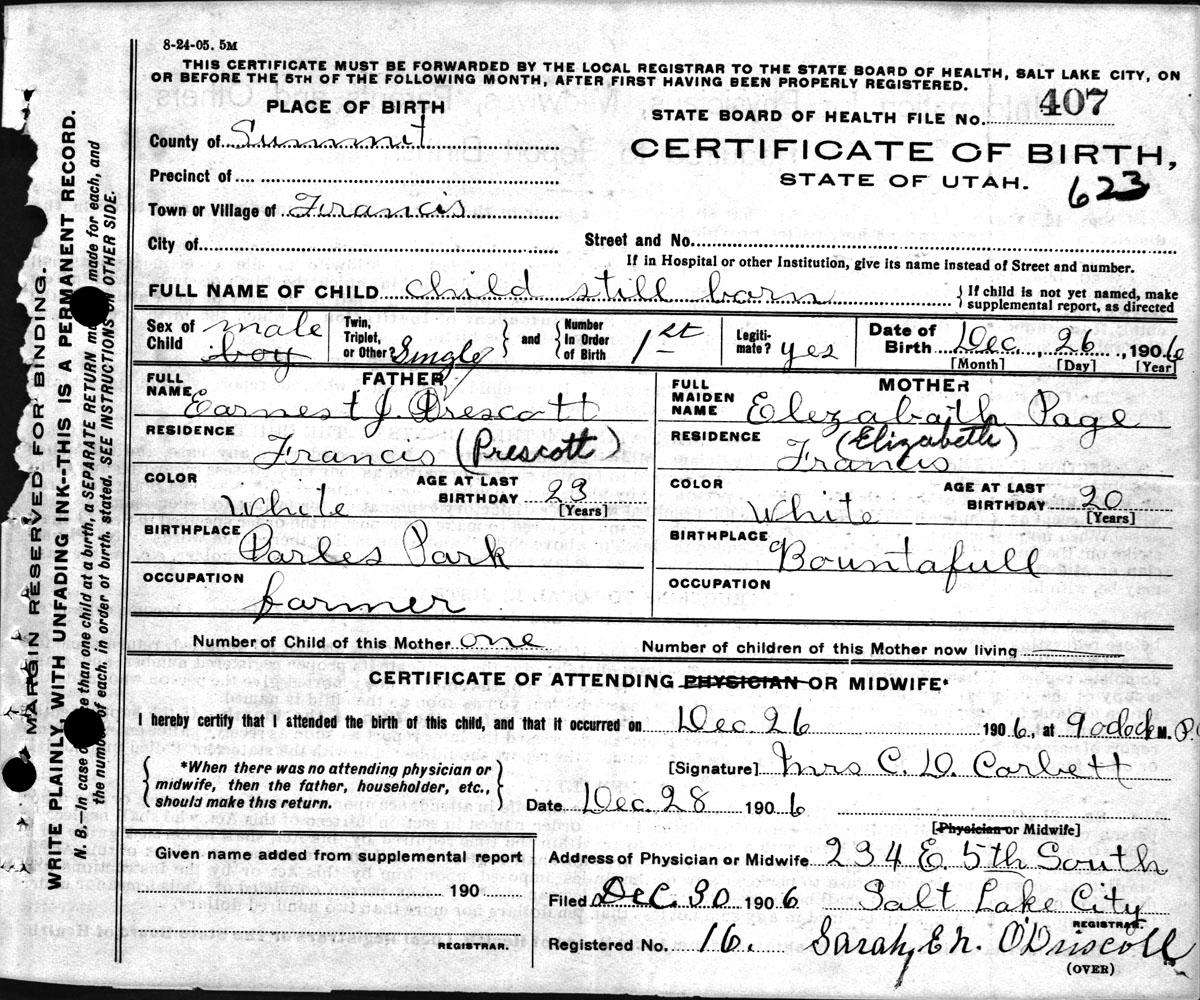 8-24-05. 5M
THIS CERTIFICATE MUST BE FORWARDED BY THE LOCAL REGISTRAR TO THE STATE BOARD OF HEALTH, SALT LAKE CITY, ON
OR BEFORE THE 5TH OF THE FOLLOWING MONTH, AFTER FIRST HAVING BEEN PROPERLY REGISTERED.
PLACE OF BIRTH
STATE BOARD OF HEALTH FILE No. 407
County of Summit
CERTIFICATE OF BIRTH,
Precinct of
STATE OF UTAH.
623
Town or Village of Francis
City of
Street and No.
If in Hospital or other Institution, give its name instead of Street and number.
FULL NAME OF CHILD child still born
{ If child is not yet named, make
supplemental report, as directed
Sex of Child male boy
Twin, Triplet, or Other? Single } and { Number In Order of Birth 1st
Legiti-mate? yes
Date of Birth Dec. , 26 , 1906
[Month] [Day] [Year]
FATHER
FULL NAME Earnest J. Prescott
RESIDENCE Francis (Prescott
COLOR White
AGE AT LAST BIRTHDAY 23
[Years]
BIRTHPLACE Parles Park
OCCUPATION farmer
MOTHER
FULL MAIDEN NAME Elezabath Page
(Elizabeth)
RESIDENCE Francis
COLOR White
AGE AT LAST BIRTHDAY 20
[Years]
BIRTHPLACE Bountafull
OCCUPATION
Number of Child of this Mother one
Number of children of this Mother now living
CERTIFICATE OF ATTENDING PHYSICIAN OR MIDWIFE*
I hereby certify that I attended the birth of this child, and that it occurred on Dec. 26 1906, at 9 oclock M. P.
{ *When there was no attending physician or
midwife, then the father, householder, etc.,
should make this return. }
[Signature] Mrs C. D. Corbett
Date Dec. 28 1906
[Physician or Midwife]
Given name added from supplemental report
190
REGISTRAR.
Address of Physician or Midwife 234 E. 5th South
Filed Dec. 30 1906 Salt Lake City
REGISTRAR.
Registered No. 16. Sarah E N. O'Driscoll
(OVER)
MARGIN RESERVED FOR BINDING.
WRITE PLAINLY, WITH UNFADING INK--THIS IS A PERMANENT RECORD.
N. B.—In case of more than one child at a birth, a SEPARATE RETURN must be made for each, and
the number of each, in order of birth, stated. SEE INSTRUCTIONS ON OTHER SIDE.